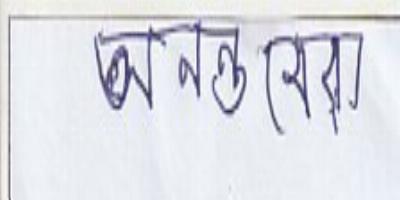 অনন্ত বেরা